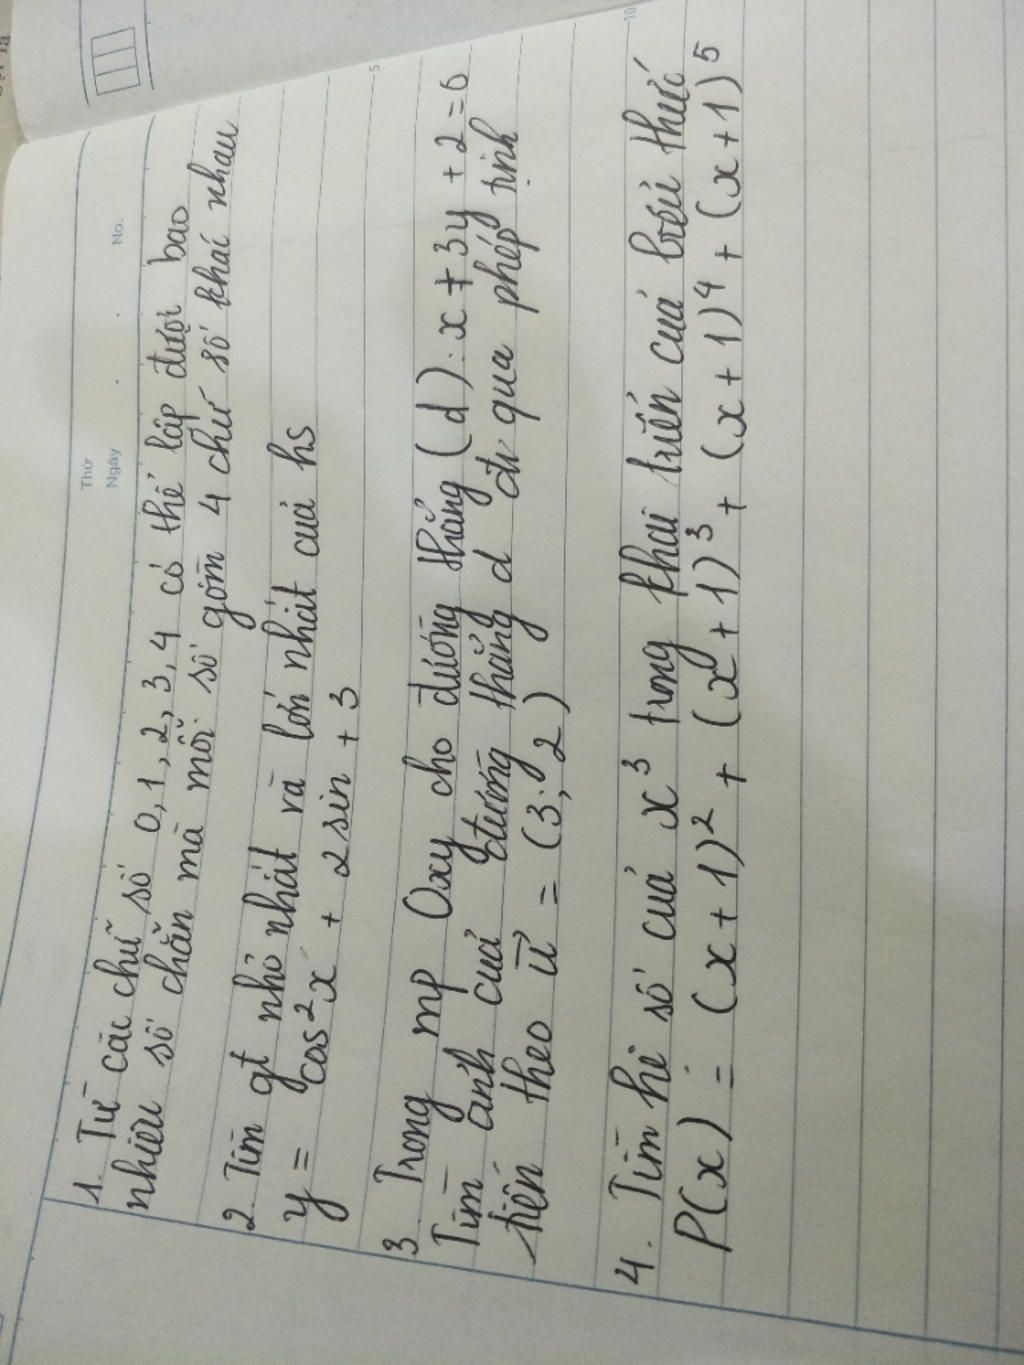 Thứ
Ngày . . No.
1. Từ các chữ số 0, 1, 2, 3, 4 có thể lập được bao
nhiêu số chẵn mà mỗi số gồm 4 chữ số khác nhau
2. Tìm gt nhỏ nhất và lớn nhất của hs
y = cos²x + 2sin + 3
5
3 Trong mp Oxy cho đường thẳng (d): x + 3y + 2 = 0
Tìm ảnh của đường thẳng d đi qua phép tịnh
tiến theo u⃗ = (3; 2)
10
4. Tìm hệ số của x³ trong khai triển của biểu thức
P(x) = (x + 1)² + (x + 1)³ + (x + 1)⁴ + (x + 1)⁵